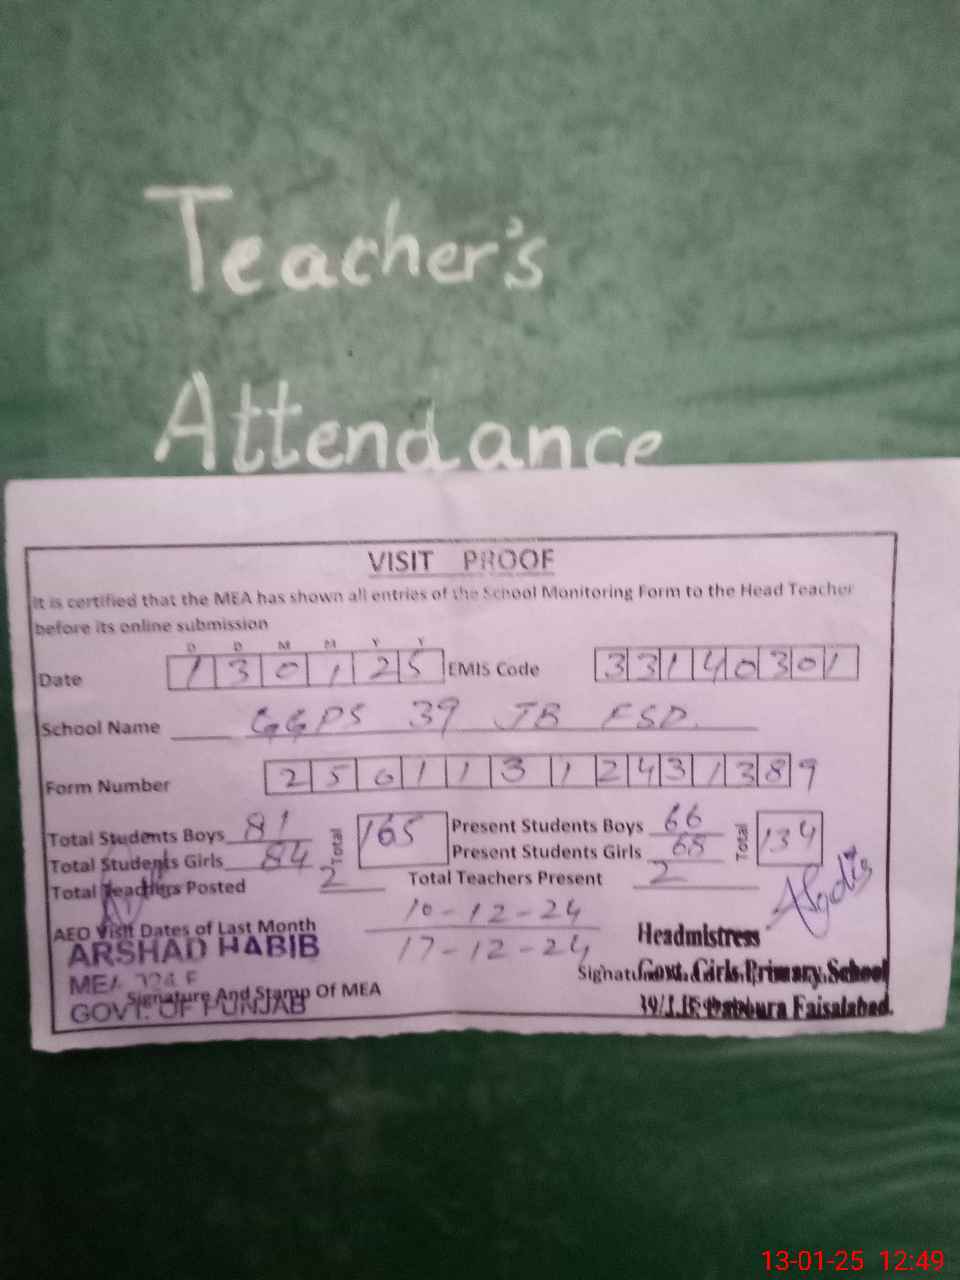 Teacher's
Attendance
VISIT PROOF
It is certified that the MEA has shown all entries of the School Monitoring Form to the Head Teacher
before its online submission
D D M M Y Y
Date 130125 EMIS Code 33140301
School Name GGPS 39 JB FSD.
Form Number 25011312431389
Total Students Boys 81 Total 165 Present Students Boys 66 Total 134
Total Students Girls 84 Present Students Girls 68
Total Teachers Posted 2 Total Teachers Present 2
AEO Visit Dates of Last Month 10-12-24
17-12-24
ARSHAD HABIB
MEA
GOVT. OF PUNJAB
Signature And Stamp Of MEA
Headmistress
Govt. Girls Primary School
39/J.B. Faisalabad.
13-01-25 12:49